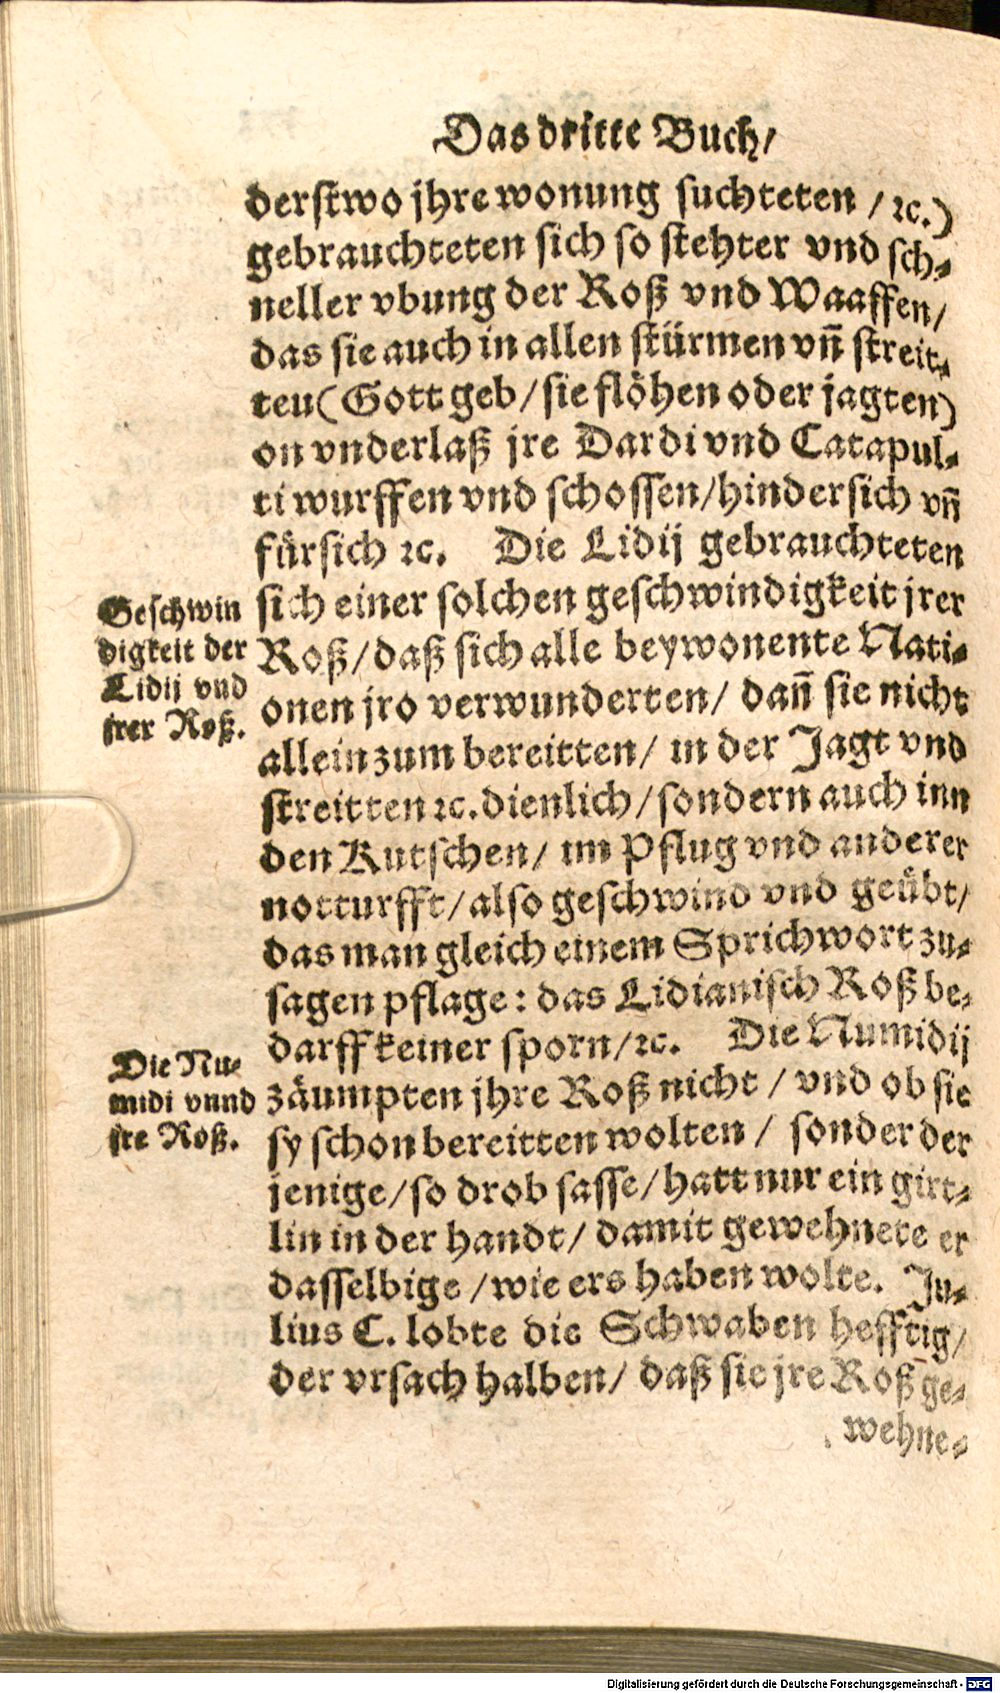 Das dritte Buch/
derstwo jhre wonung suchteten / ꝛc.)
gebrauchteten sich so stehter vnd sch⸗
neller vbung der Roß vnd Waaffen/
das sie auch in allen stürmen vñ streit⸗
ten (Gott geb/sie flöhen oder jagten)
on vnderlaß jre Dardi vnd Catapul⸗
ti wurffen vnd schossen/hindersich vñ
fürsich ꝛc. Die Lidij gebrauchteten
sich einer solchen geschwindigkeit jrer
Roß/daß sich alle beywonente Nati⸗
onen jro verwunderten/ dañ sie nicht
allein zum bereitten/ in der Jagt vnd
streitten ꝛc. dienlich/sondern auch inn
den Kutschen/ im Pflug vnd anderer
notturfft/also geschwind vnd geübt/
das man gleich einem Sprichwort zu⸗
sagen pflage: das Lidianisch Roß be⸗
darff keiner sporn/ꝛc. Die Numidij
zäumpten jhre Roß nicht / vnd ob sie
sy schon bereitten wolten / sonder der
jenige/so drob sasse/hatt nur ein girt⸗
lin in der handt/ damit gewehnete er
dasselbige /wie ers haben wolte. Ju⸗
lius C. lobte die Schwaben hefftig/
der vrsach halben/ daß sie jre Roß ge⸗
wehne⸗
Geschwin
digkeit der
Lidij vnd
jrer Roß.
Die Nu⸗
midi vnnd
jre Roß.
Digitalisierung gefördert durch die Deutsche Forschungsgemeinschaft - DFG